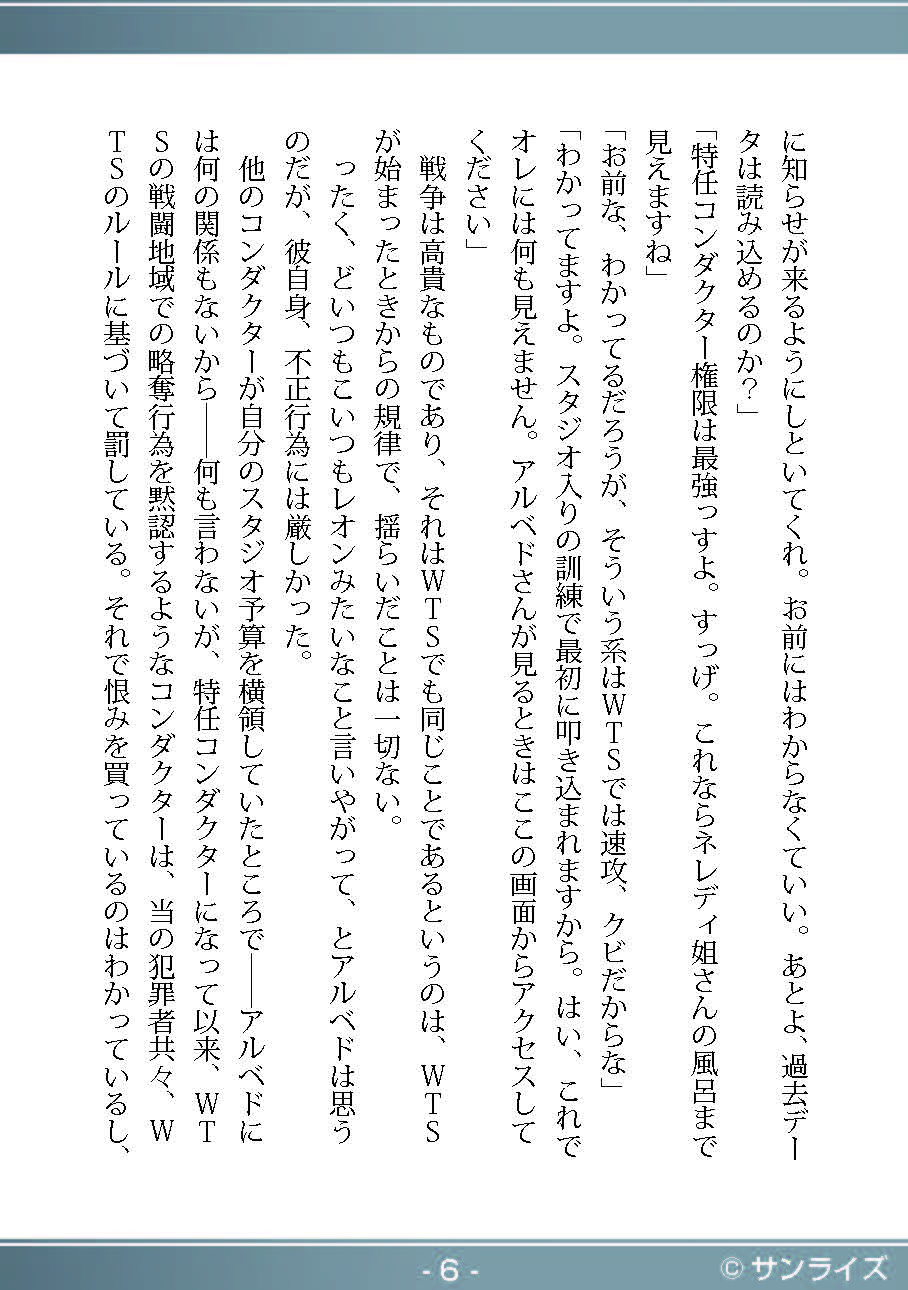 に知らせが来るようにしといてくれ。お前にはわからなくていい。あとよ、過去デー
タは読み込めるのか？」
「特任コンダクター権限は最強っすよ。すっげ。これならネレディ姐さんの風呂まで
見えますね」
「お前な、わかってるだろうが、そういう系はＷＴＳでは速攻、クビだからな」
「わかってますよ。スタジオ入りの訓練で最初に叩き込まれますから。はい、これで
オレには何も見えません。アルベドさんが見るときはここの画面からアクセスして
ください」
戦争は高貴なものであり、それはＷＴＳでも同じことであるというのは、ＷＴＳ
が始まったときからの規律で、揺らいだことは一切ない。
ったく、どいつもこいつもレオンみたいなこと言いやがって、とアルベドは思う
のだが、彼自身、不正行為には厳しかった。
他のコンダクターが自分のスタジオ予算を横領していたところで――アルベドに
は何の関係もないから――何も言わないが、特任コンダクターになって以来、ＷＴ
Ｓの戦闘地域での略奪行為を黙認するようなコンダクターは、当の犯罪者共々、Ｗ
ＴＳのルールに基づいて罰している。それで恨みを買っているのはわかっているし、
- 6 -
© サンライズ